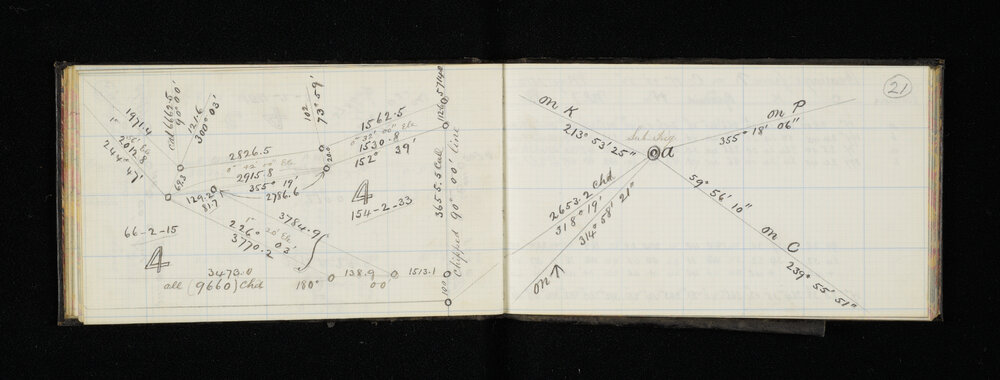 1971.4
1°
2°56' El.
2012.8
244° 47'
cal 6662.5
90° 00'
121.6
300° 03'
102
73° 59'
1562.5
1530.8
152° 39'
1126.5740
365.5.5 Cal
Chipped 90° 00' line
2826.5
2915.8
355° 19'
2786.6
69.3
129.2
81.7
200
4
154-2-33
66-2-15
4
226° 03'
3770.2
3784.9
3473.0
all (9660) Chd
180°
138.9
00
1513.1
100
21
on K
213° 53' 25"
on P
355° 18' 06"
a
59° 56' 10"
on C
239° 55' 51"
2653.2 Chd
318° 19'
314° 58' 21"
on ↑